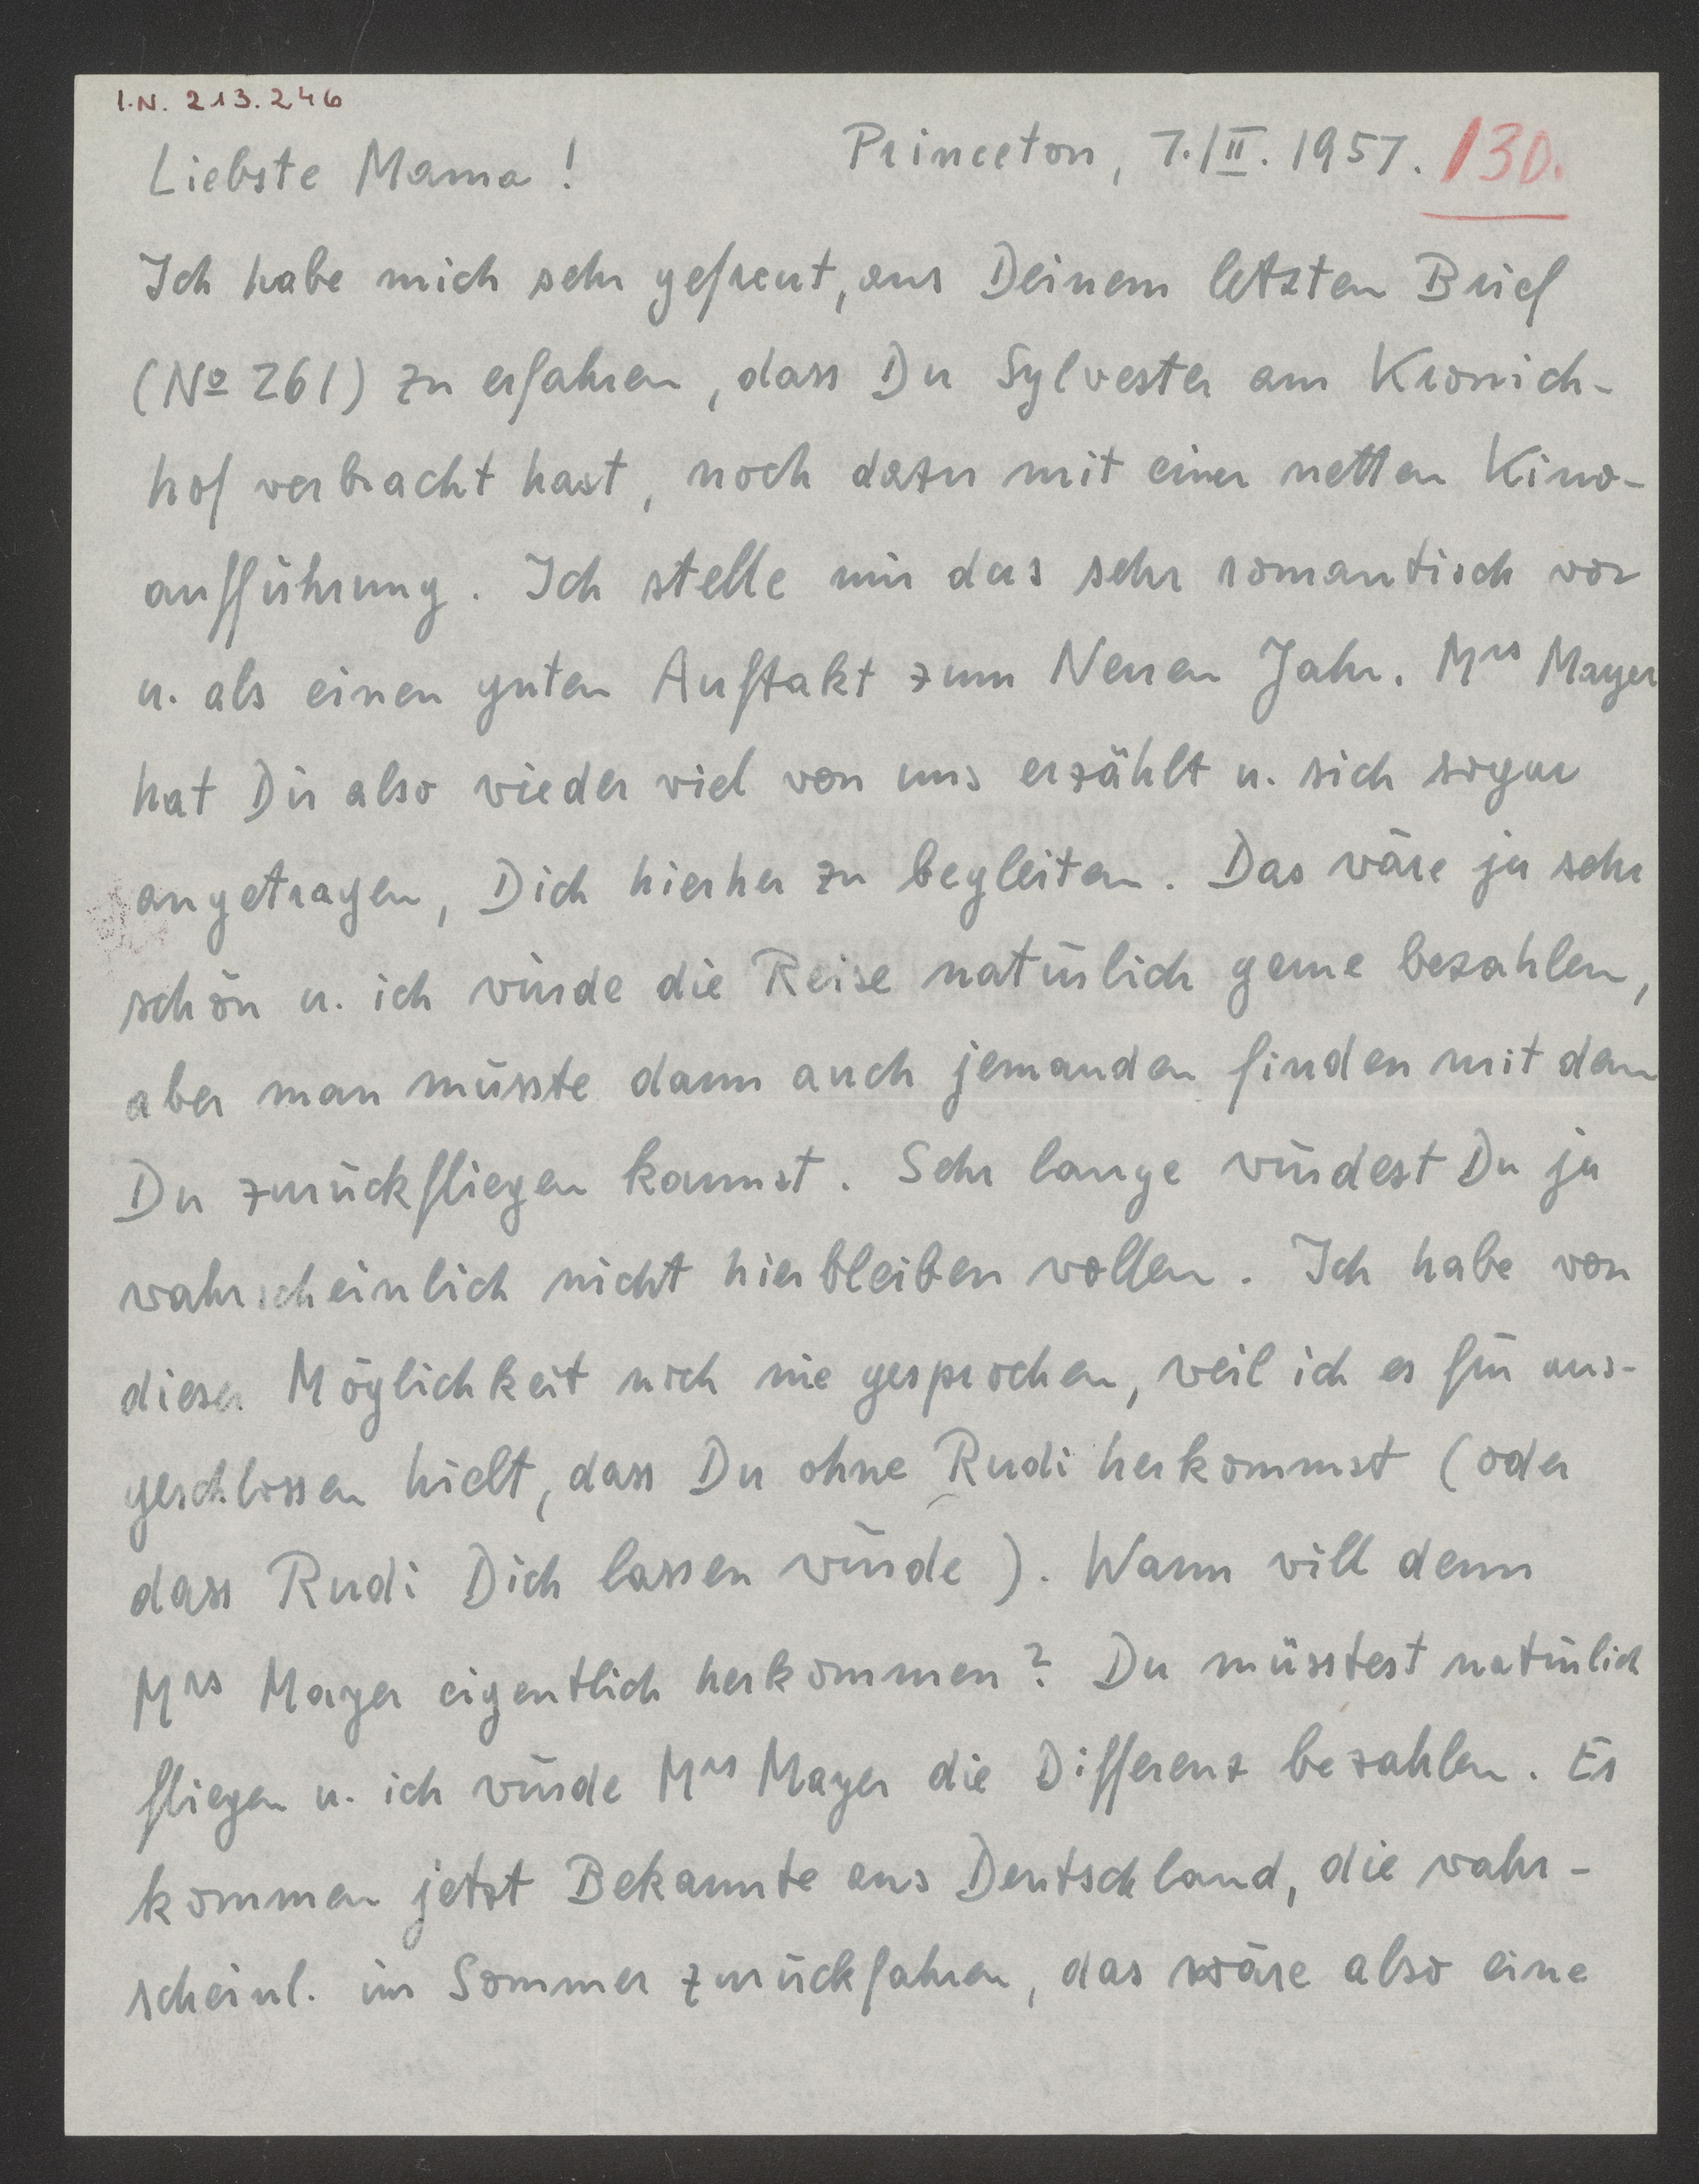 I.N. 213.246
Princeton, 7./II. 1957. 130.
Liebste Mama!
Ich habe mich sehr gefreut, aus Deinem letzten Brief
(No 261) zu erfahren, dass Du Sylvester am Kronich-
hof verbracht hast, noch dazu mit einer netten Kino-
aufführung. Ich stelle mir das sehr romantisch vor
u. als einen guten Auftakt zum Neuen Jahr. Mrs Mayer
hat Dir also wieder viel von uns erzählt u. sich sogar
angetragen, Dich hierher zu begleiten. Das wäre ja sehr
schön u. ich würde die Reise natürlich gerne bezahlen,
aber man müsste dann auch jemanden finden mit dem
Du zurückfliegen kannst. Sehr lange würdest Du ja
wahrscheinlich nicht hierbleiben wollen. Ich habe von
dieser Möglichkeit noch nie gesprochen, weil ich es für aus-
geschlossen hielt, dass Du ohne Rudi herkommst (oder
dass Rudi Dich lassen würde). Wann will denn
Mrs Mayer eigentlich herkommen? Du müsstest natürlich
fliegen u. ich würde Mrs Mayer die Differenz bezahlen. Es
kommen jetzt Bekannte aus Deutschland, die wahr-
scheinl. im Sommer zurückfahren, das wäre also eine